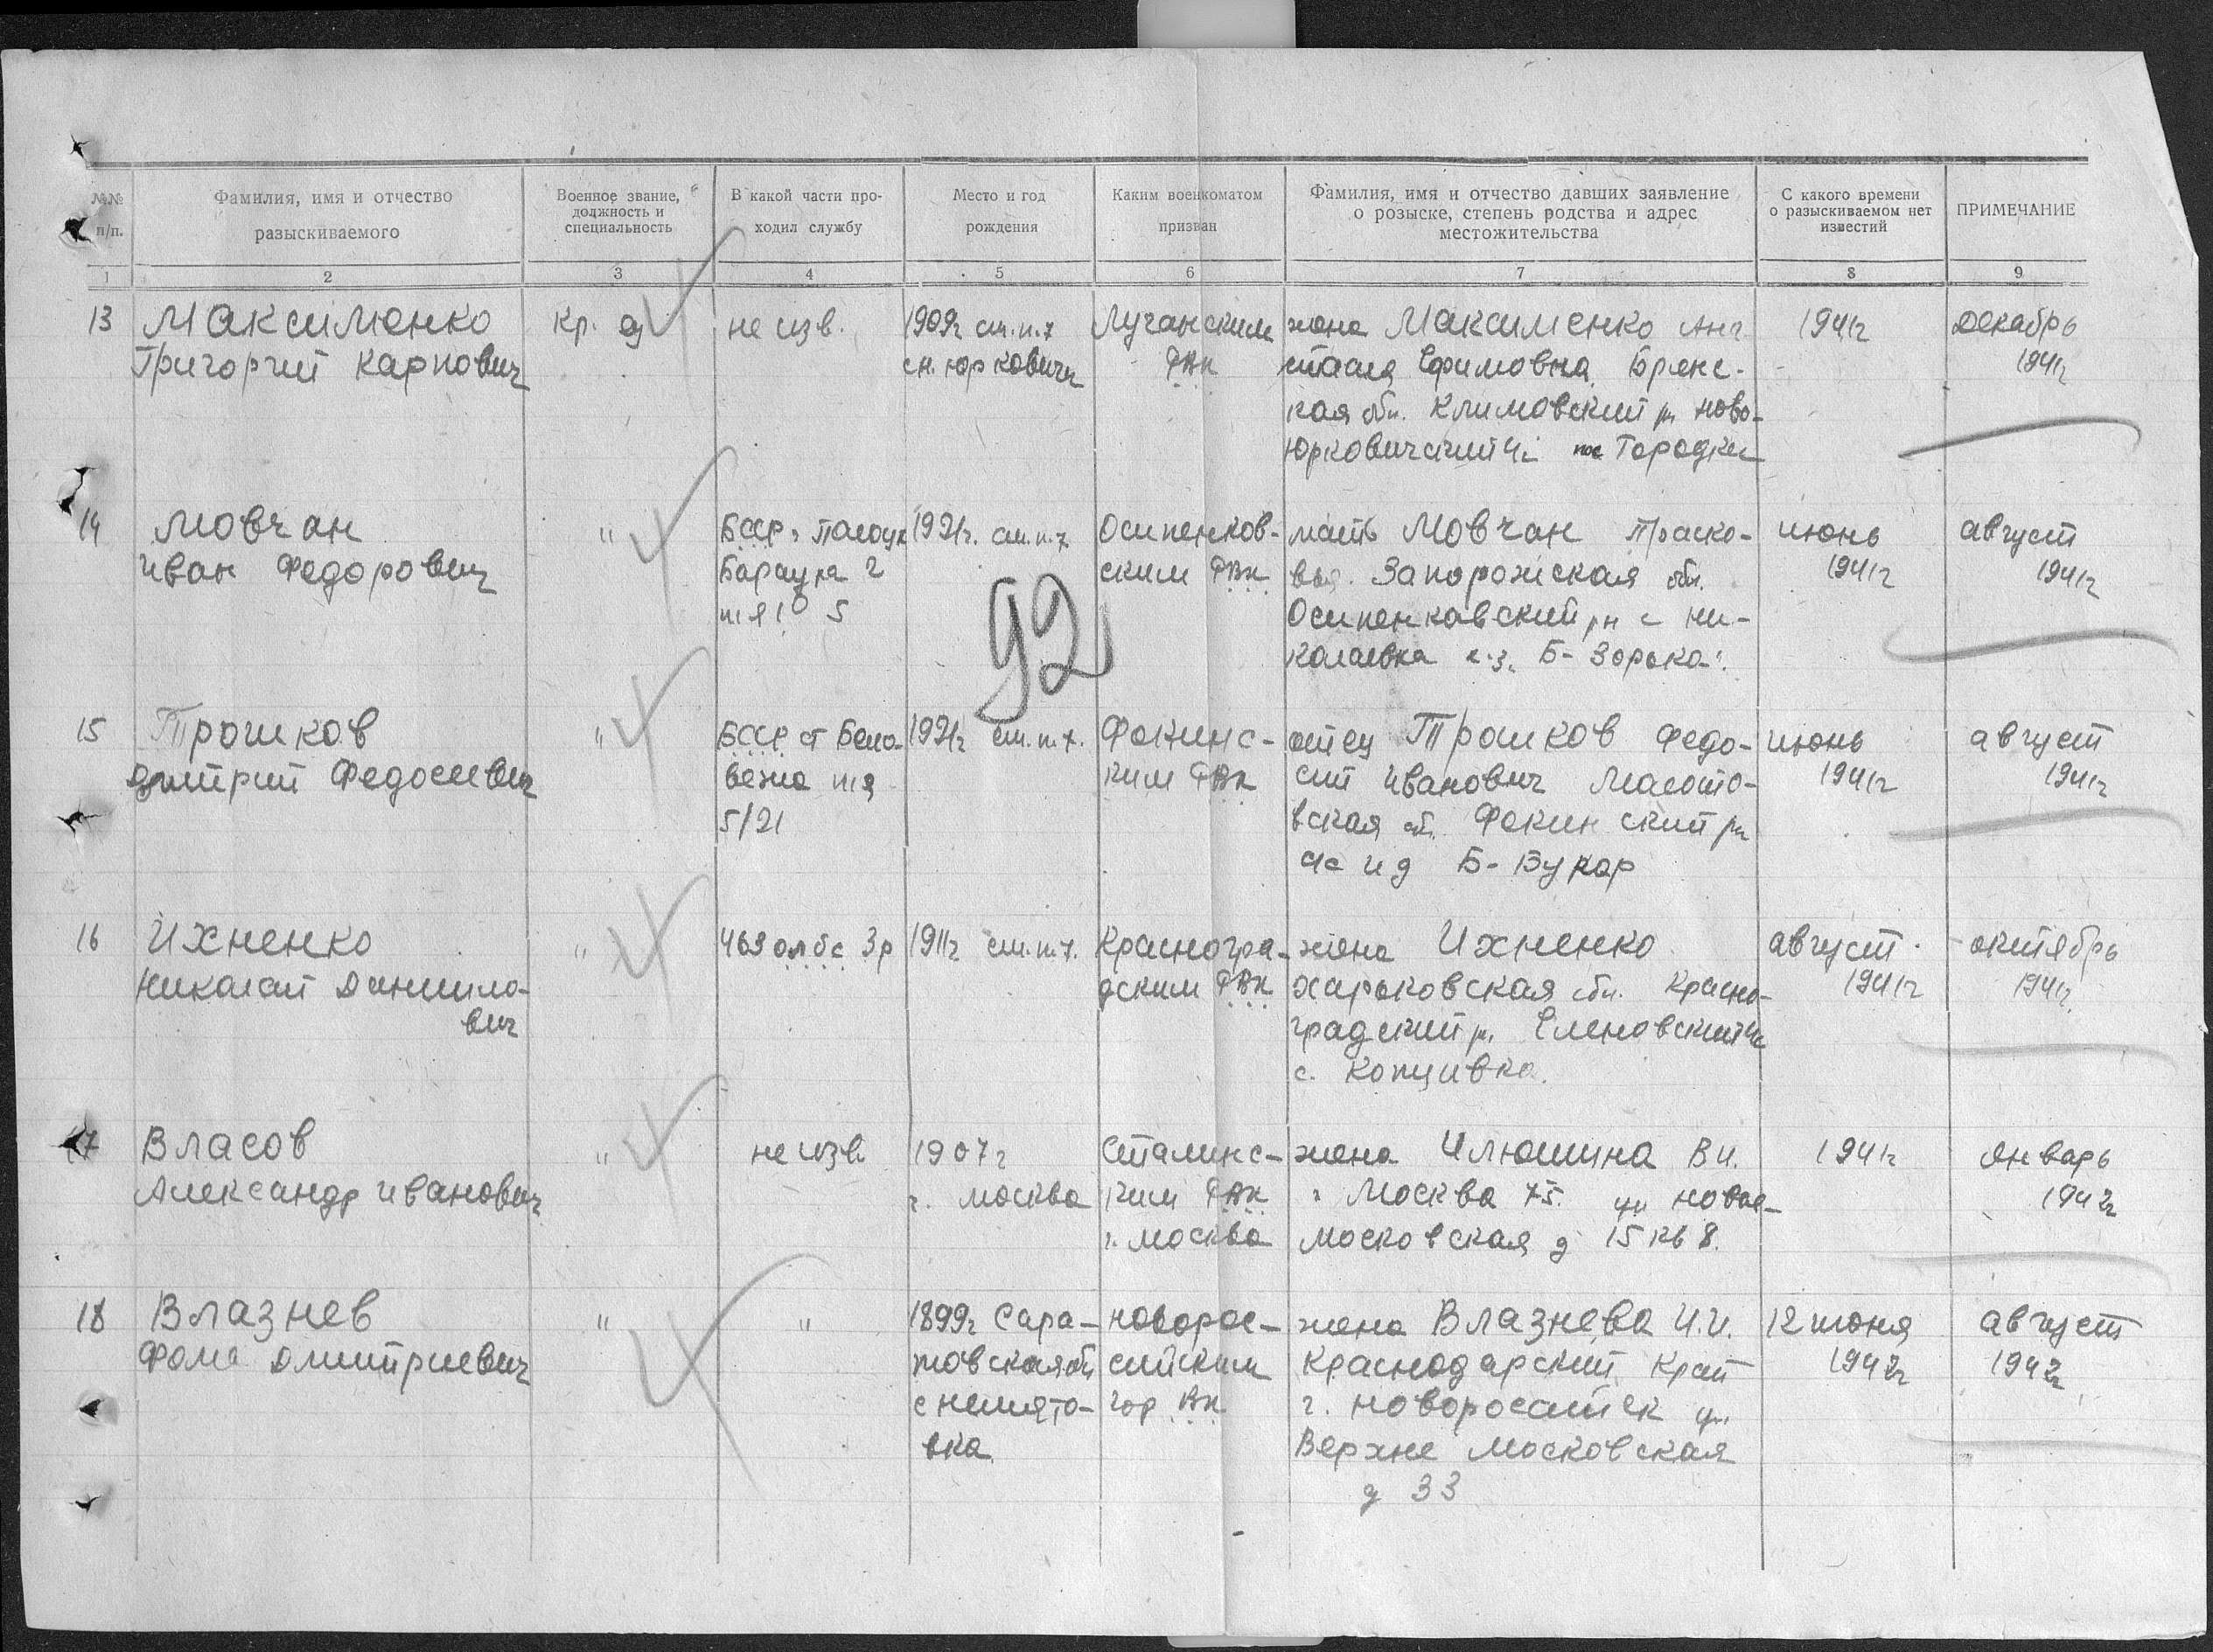 №№ п/п.
Фамилия, имя и отчество разыскиваемого
Военное звание, должность и специальность
В какой части проходил службу
Место и год рождения
Каким военкоматом призван
Фамилия, имя и отчество давших заявление о розыске, степень родства и адрес местожительства
С какого времени о разыскиваемом нет известий
ПРИМЕЧАНИЕ
1 2 3 4 5 6 7 8 9
13
Максименко
Григорий Карпович
Кр. ац
не изв.
1909г см.п.7
сн. юрковичи
РВк
жена Максименко Анг
Ефимовна Брянс-
кая обл. Климовский рн Ново-
юрковичский пос Городки
1941г
декабрь
1941г
14
Мовчан
Иван Федорович
"
Бсср
5
1921г. см.п.7
Осипенков-
ским РВк
мать Мовчан Праско-
вья. Запорожская обл.
Осипенкавский рн с Ни-
колаевка к-з. Б- Зорька.
июнь
1941г
август
1941г
92
15
Трошков
Дмитрий Федосеевич
"
Бсср ст Бело-
вежа пя
5/21
1921г см.п.7.
Фокинс-
ким РВк
отец Трошков Федо-
сий Иванович Молото-
вская обл. Фокинский рн
Б- Букор
июнь
1941г
август
1941г
16
Ихненко
Николай Данило-
вич
"
463 олбс 3р
1911г см.п.7.
Красногра-
дским РВк
жена Ихненко
Харьковская обл. Красно-
градский р. Еленовский
с. Копцивка.
август
1941г
октябрь
1941г
17
Власов
Александр Иванович
"
не изв
1907г
г. Москва
Сталинс-
ким РВк
г. Москва
жена Илюшина В И.
г Москва 75. ул Ново-
московская д 15 кв 8.
1941г
Январь
1942г
18
Влазнев
Фома Дмитриевич
"
"
1899г Сара-
товская об
вка
Новорос-
сийским
гор ВК
жена Влазнева И.И.
Краснодарский Край
г. Новоросайск ул
Верхне Московская
д 33
12 июня
1942г
август
1942г